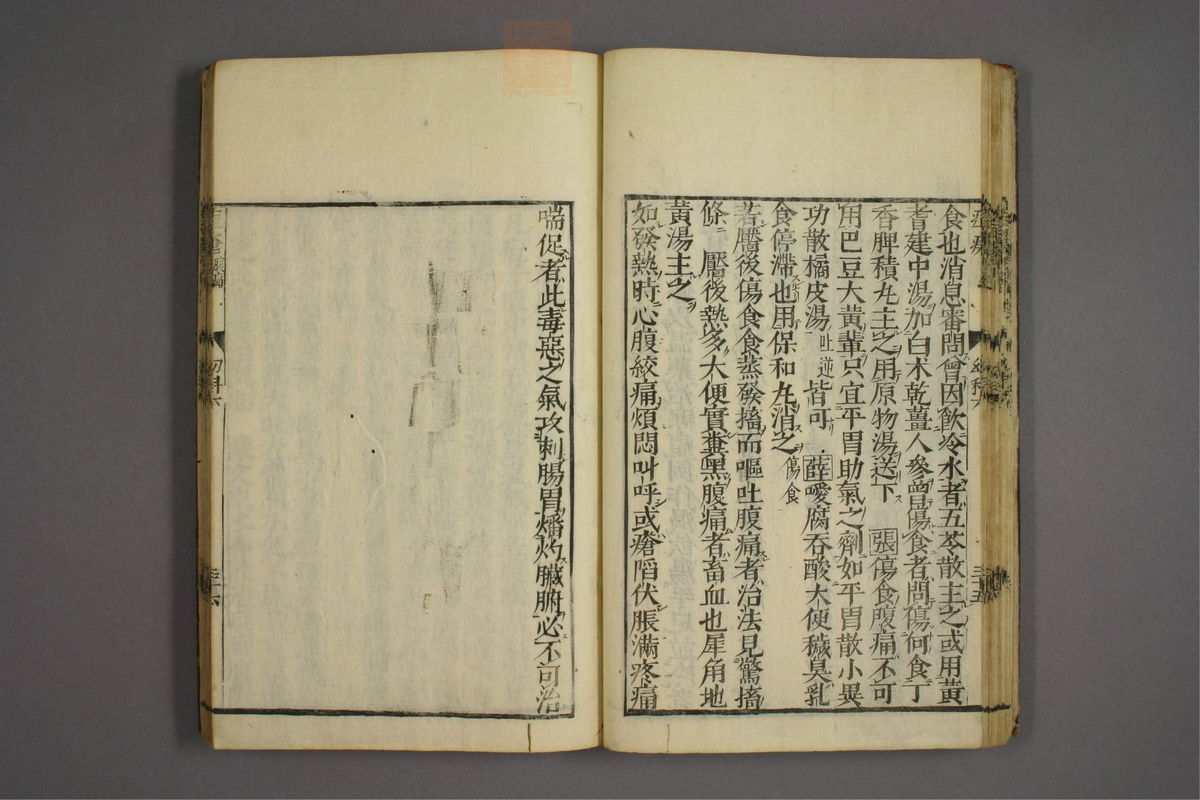 食也消息審問曾因飲冷水者五苓散主之或用黃
耆建中湯加白术乾薑人參曾傷食者問傷何食丁
香脾積丸主之用原物湯送下 張傷食腹痛不可
用巴豆大黃輩只宜平胃助氣之劑如平胃散小異
功散橘皮湯吐逆皆可 薛噯腐吞酸大便穢臭乳
食停滯也用保和丸消之傷食
若靨後傷食食蒸發搐而嘔吐腹痛者治法見驚搐
條 靨後熱多大便實糞黑腹痛者畜血也犀角地
黃湯主之
如發熱時心腹絞痛煩悶叫呼或瘡陷伏脹滿疼痛
喘促者此毒惡之氣攻刺腸胃燔灼臟腑必不可治
幼科六